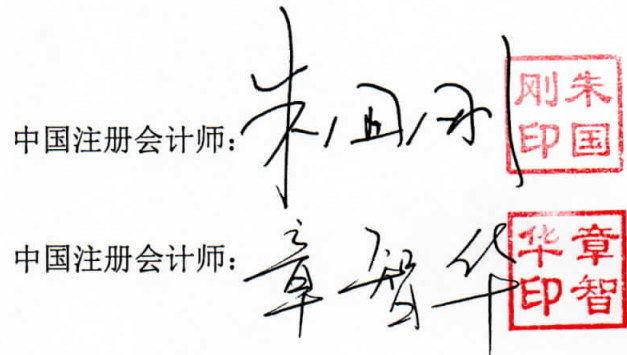 中国注册会计师：朱国刚 朱国刚印
中国注册会计师：章智华 章智华印